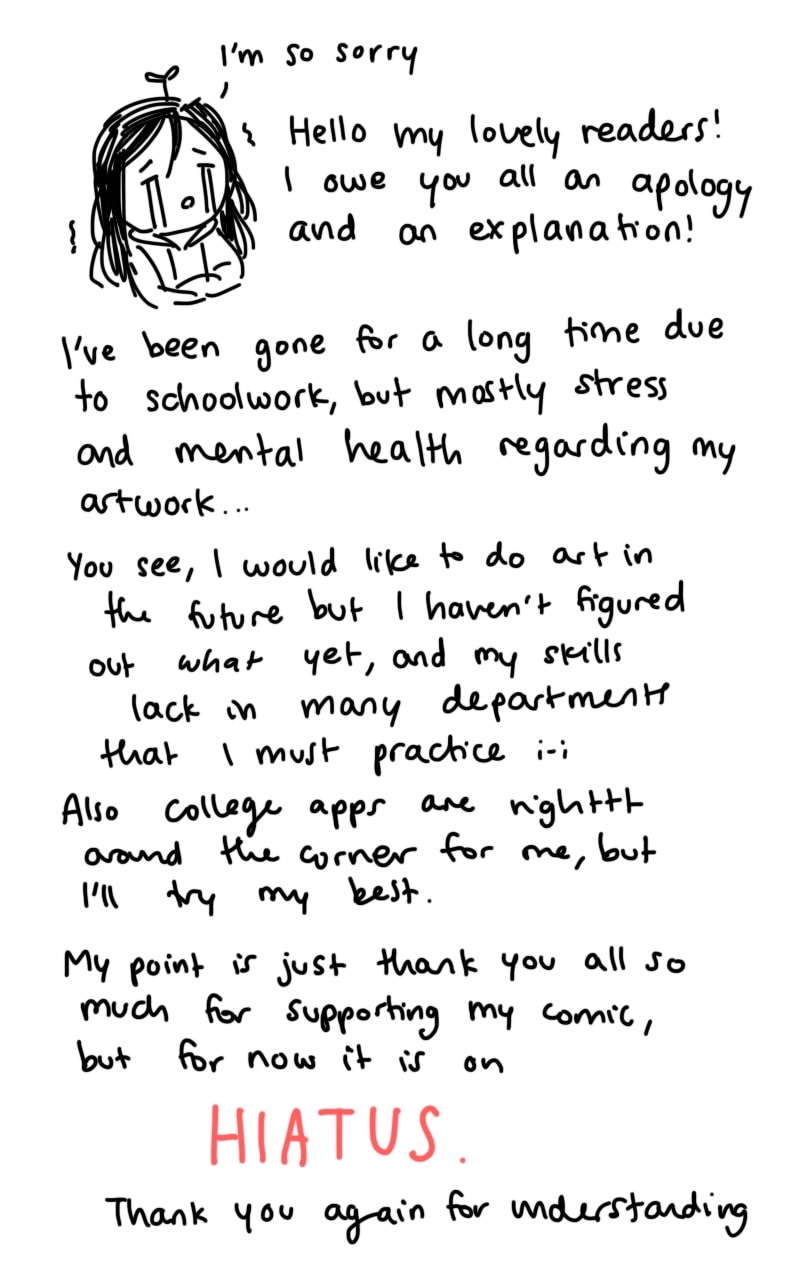 I'm so sorry
Hello my lovely readers!
I owe you all an apology
and an explanation!
I've been gone for a long time due
to schoolwork, but mostly stress
and mental health regarding my
artwork...
You see, I would like to do art in
the future but I haven't figured
out what yet, and my skills
lack in many departments
that I must practice i-i
Also college apps are righttt
around the corner for me, but
I'll try my best.
My point is just thank you all so
much for supporting my comic,
but for now it is on
HIATUS.
Thank you again for understanding